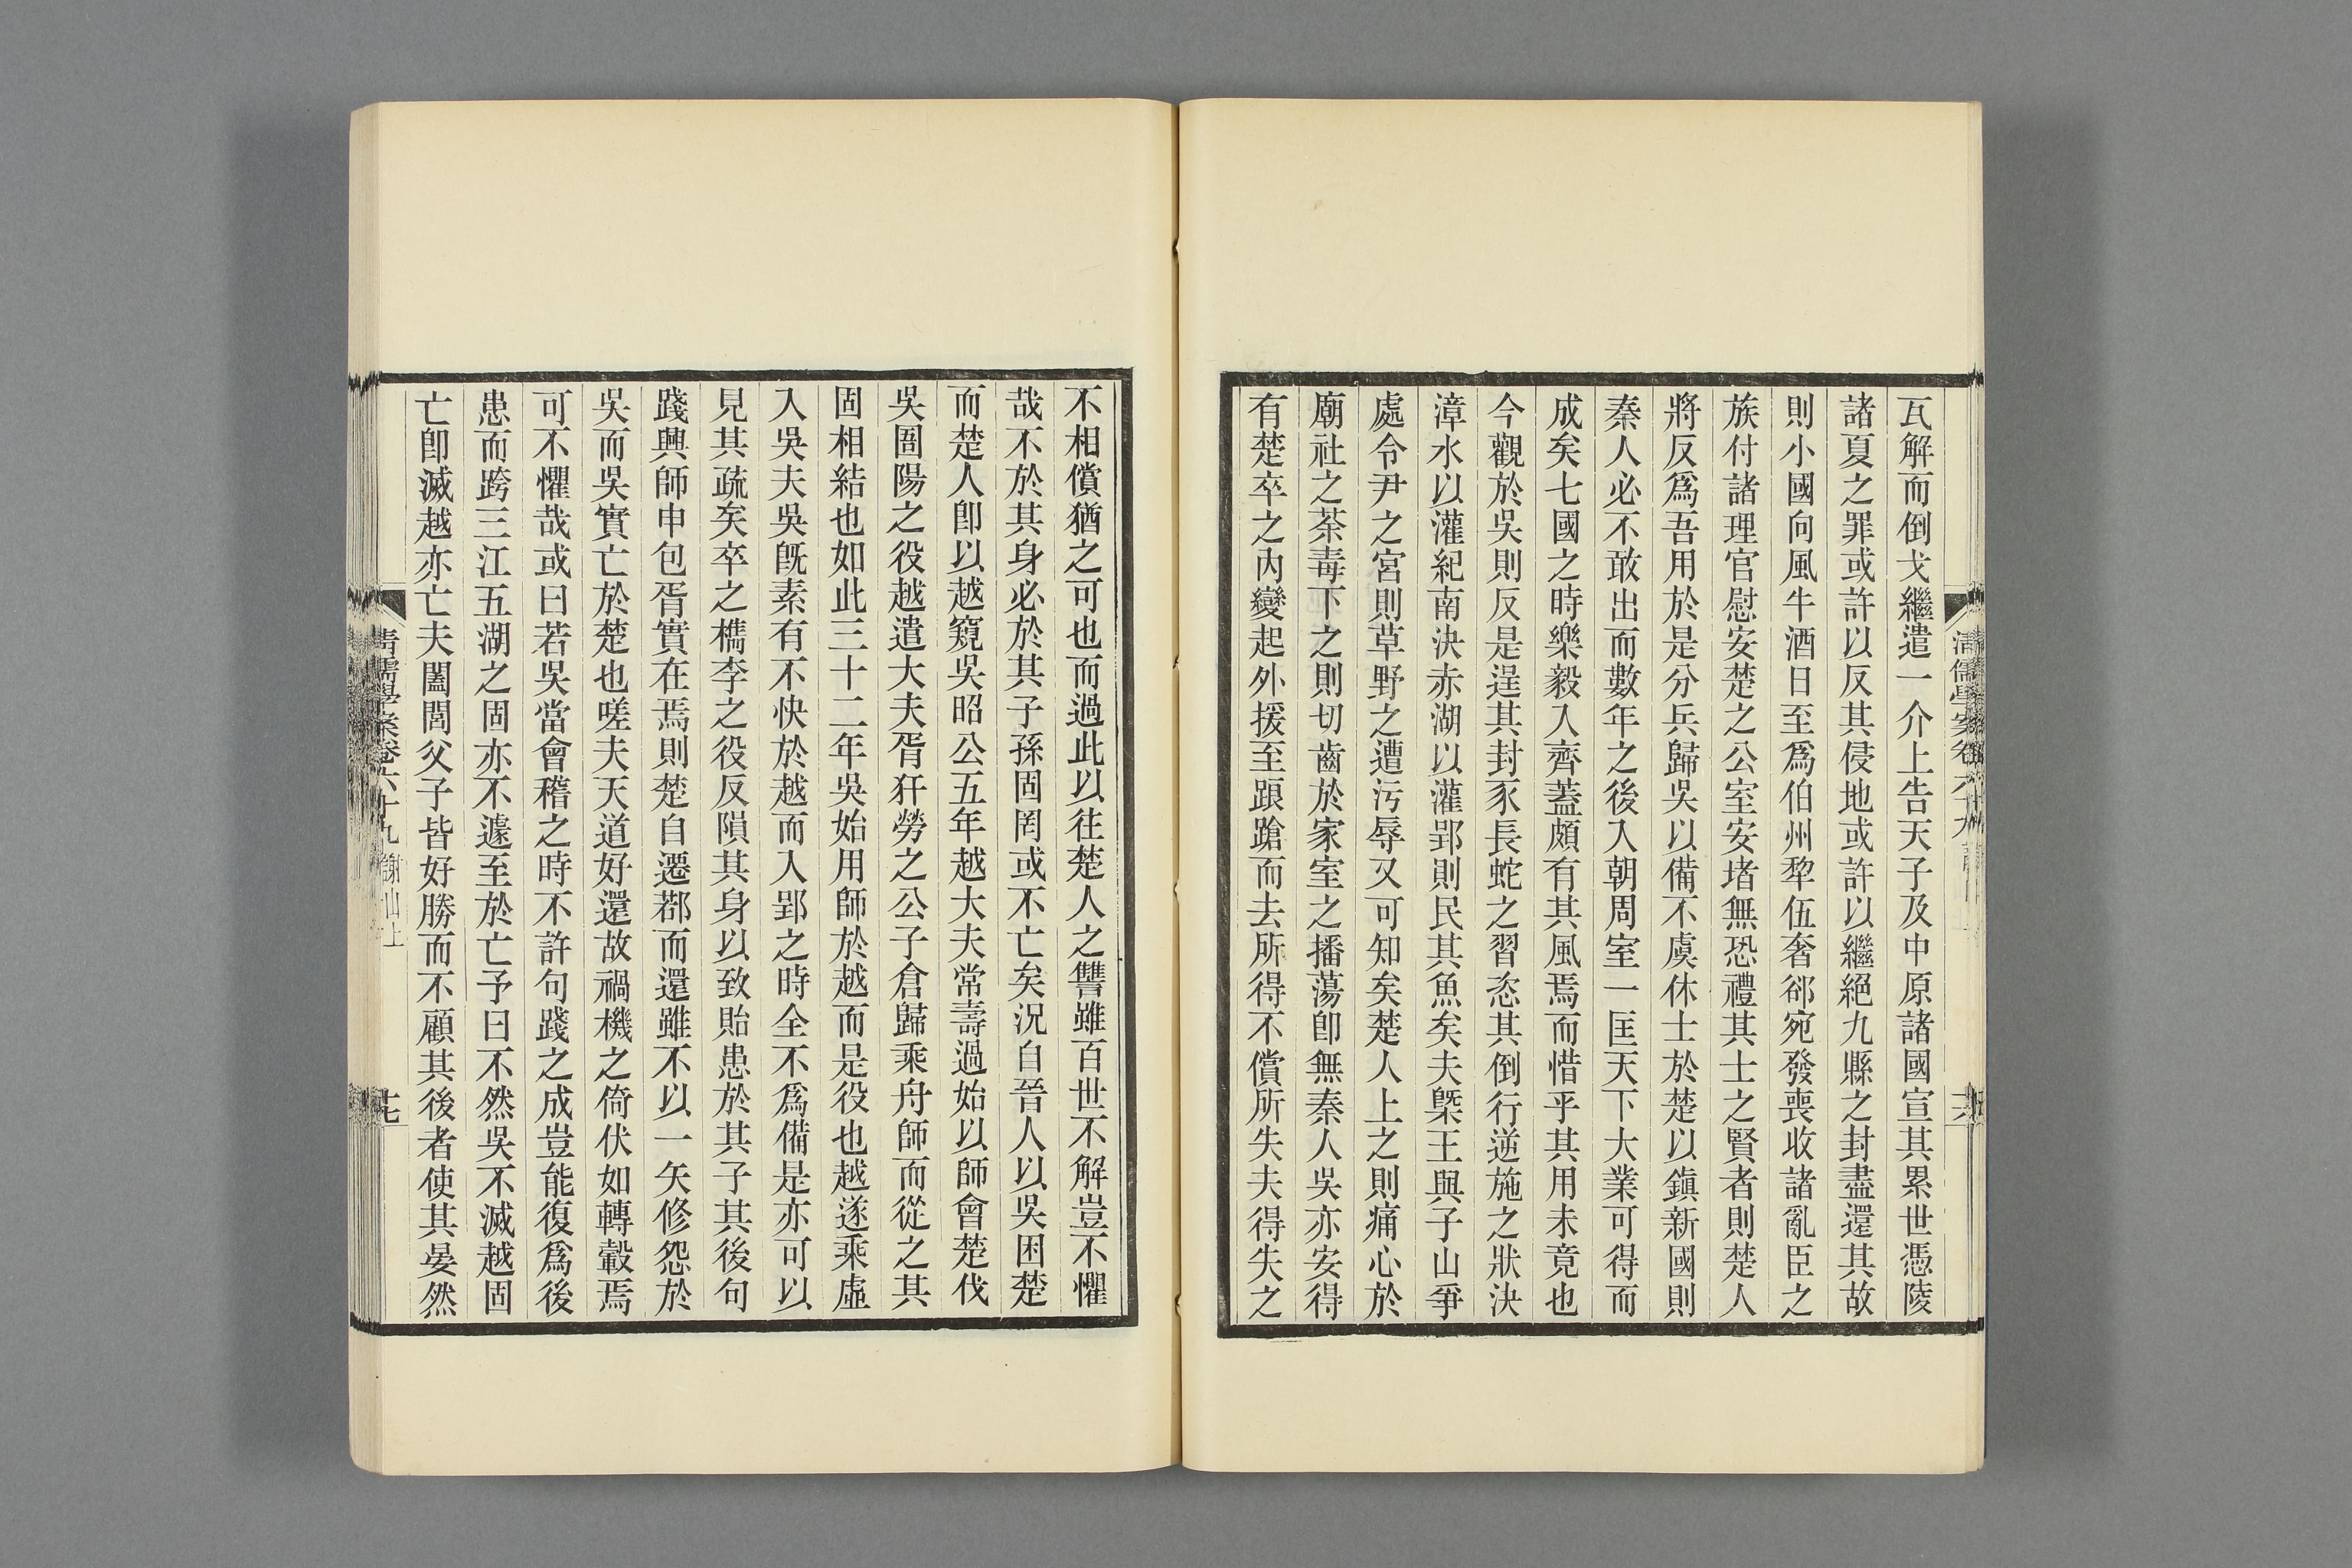 瓦解而倒戈繼遣一介上告天子及中原諸國宣其累世憑陵
諸夏之罪或許以反其侵地或許以繼絕九縣之封盡還其故
則小國向風牛酒日至爲伯州犂伍奢郤宛發喪收諸亂臣之
族付諸理官慰安楚之公室安堵無恐禮其士之賢者則楚人
將反爲吾用於是分兵歸吳以備不虞休士於楚以鎭新國則
秦人必不敢出而數年之後入朝周室一匡天下大業可得而
成矣七國之時樂毅入齊蓋頗有其風焉而惜乎其用未竟也
今觀於吳則反是逞其封豕長蛇之習恣其倒行逆施之狀決
漳水以灌紀南決赤湖以灌郢則民其魚矣夫槩王與子山爭
處令尹之宮則草野之遭污辱又可知矣楚人上之則痛心於
廟社之荼毒下之則切齒於家室之播蕩卽無秦人吳亦安得
有楚卒之內變起外援至踉蹌而去所得不償所失夫得失之
不相償猶之可也而過此以往楚人之讐雖百世不解豈不懼
哉不於其身必於其子孫固罔或不亡矣況自晉人以吳困楚
而楚人卽以越窺吳昭公五年越大夫常壽過始以師會楚伐
吳圄陽之役越遣大夫胥犴勞之公子倉歸乘舟師而從之其
固相結也如此三十二年吳始用師於越而是役也越遂乘虛
入吳夫吳旣素有不快於越而入郢之時全不爲備是亦可以
見其疏矣卒之檇李之役反隕其身以致貽患於其子其後句
踐興師申包胥實在焉則楚自遷鄀而還雖不以一矢修怨於
吳而吳實亡於楚也嗟夫天道好還故禍機之倚伏如轉轂焉
可不懼哉或曰若吳當會稽之時不許句踐之成豈能復爲後
患而跨三江五湖之固亦不遽至於亡予曰不然吳不滅越固
亡卽滅越亦亡夫闔閭父子皆好勝而不顧其後者使其晏然
清儒學案卷六十九 謝山上
十七